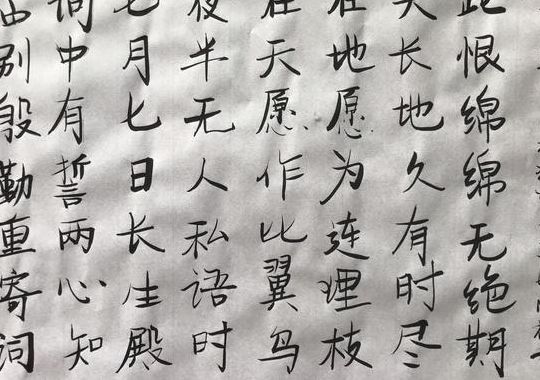 临别殷勤重寄词
词中有誓两心知
七月七日长生殿
夜半无人私语时
在天愿作比翼鸟
在地愿为连理枝
天长地久有时尽
此恨绵绵无绝期